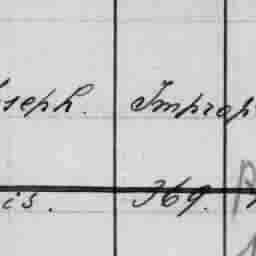 oseph. Improp
is. 369.